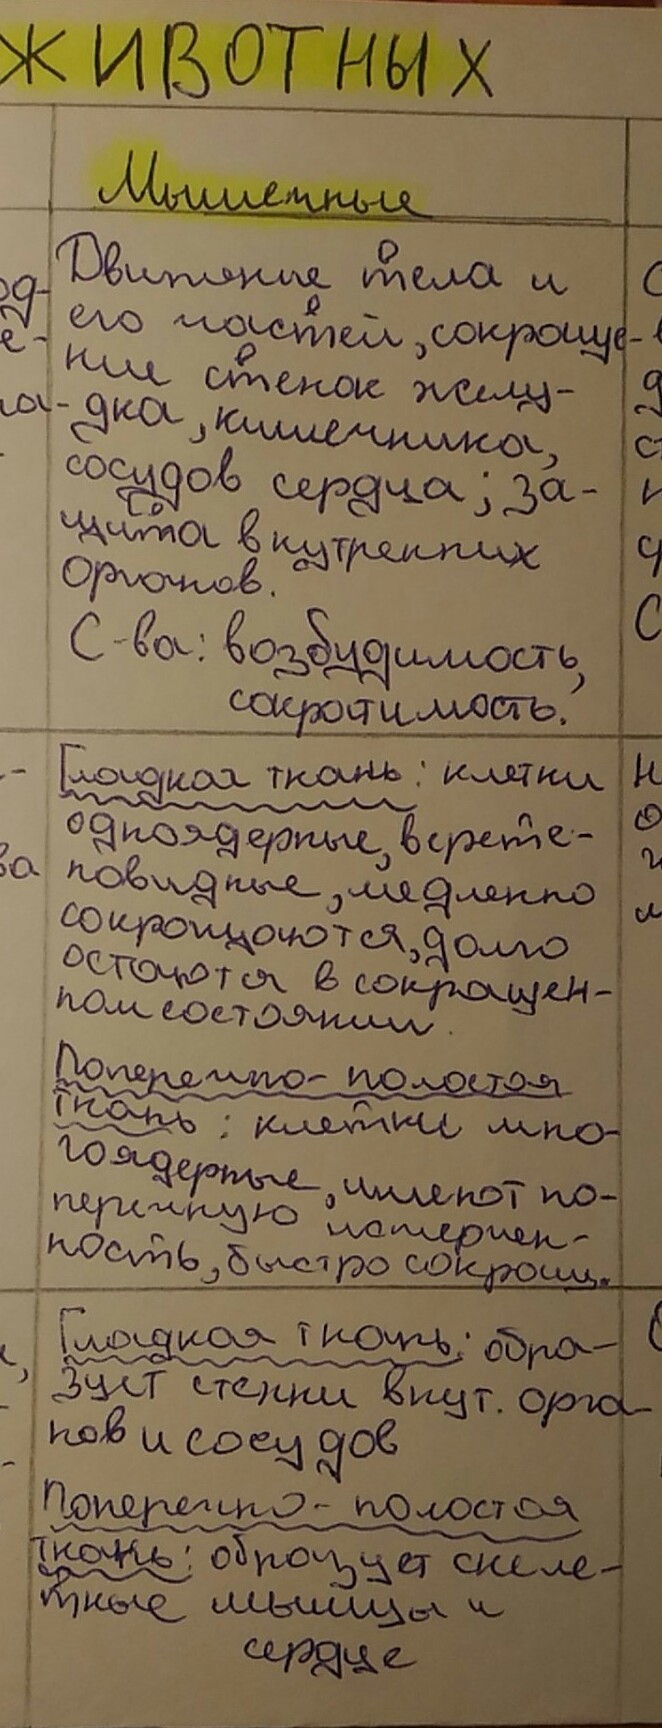 ЖИВОТНЫХ
Мышечные
Движение тела и
его частей, сокраще-
ние стенок желу-
дка, кишечника,
сосудов сердца; за-
щита внутренних
органов.
С-ва: возбудимость,
сократимость.
Гладкая ткань: клетки
одноядерные, верете-
новидные, медленно
сокращаются, долго
остаются в сокращен-
ном состоянии.
Поперечно-полостая
ткань: клетки мно-
гоядерные, имеют по-
перечную исчерчен-
ность, быстро сокращ.
Гладкая ткань: обра-
зует стенки внут. орга-
нов и сосудов
Поперечно-полостая
ткань: образует скеле-
тные мышцы и
сердце